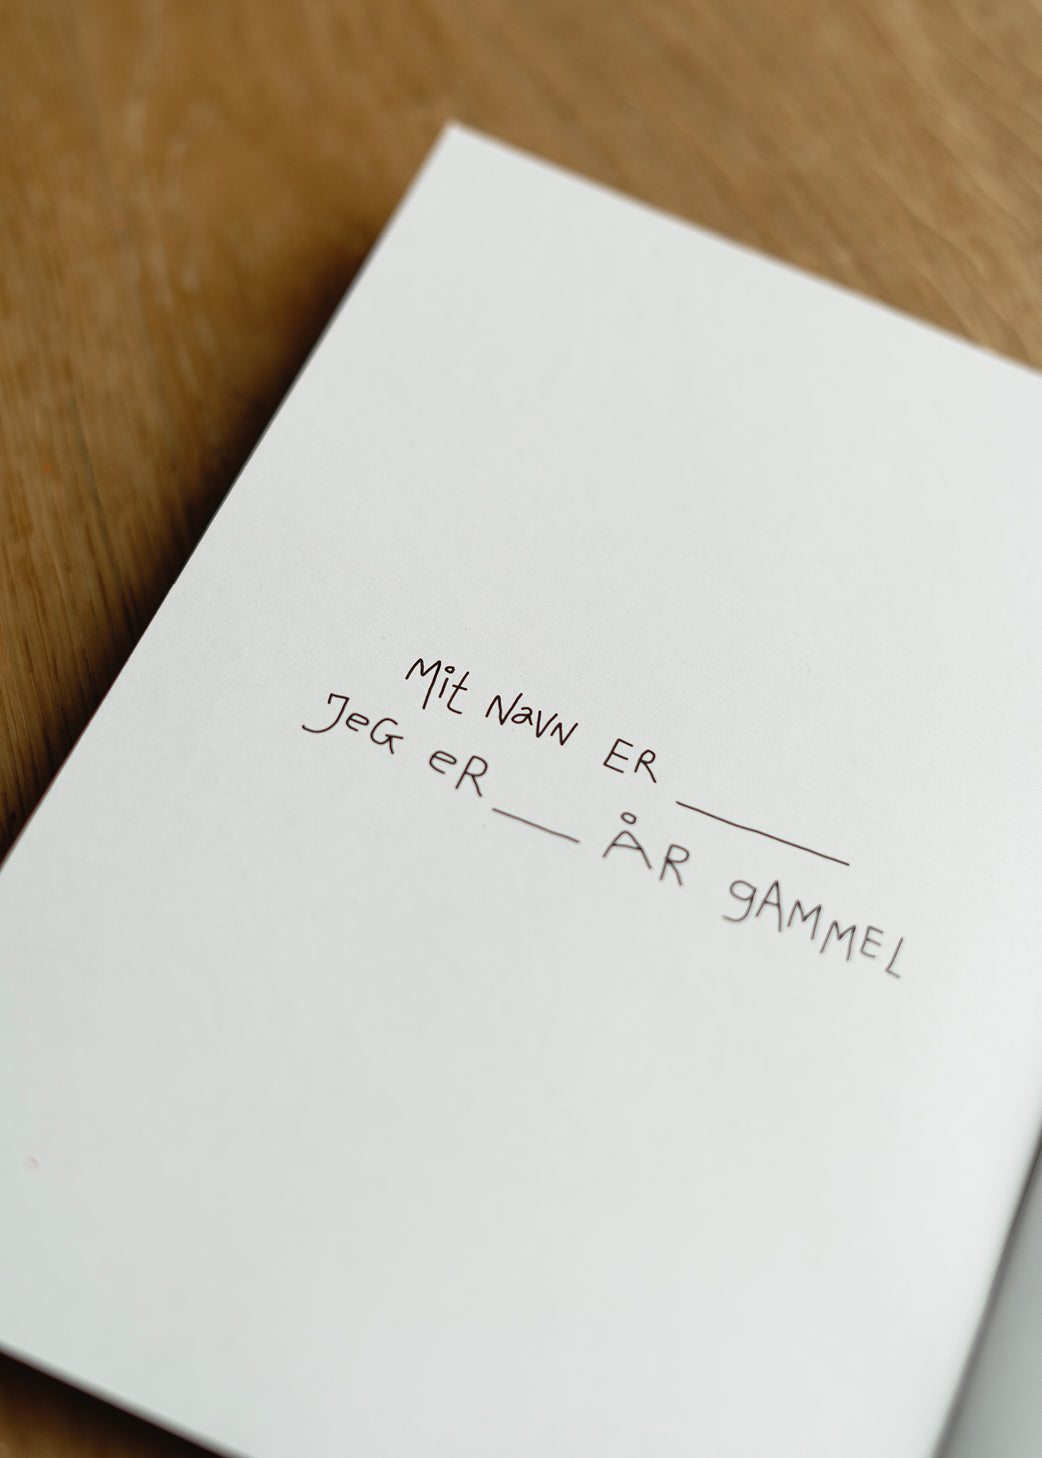 Mit NavN ER ______
JeG eR ___ ÅR gAMMEL